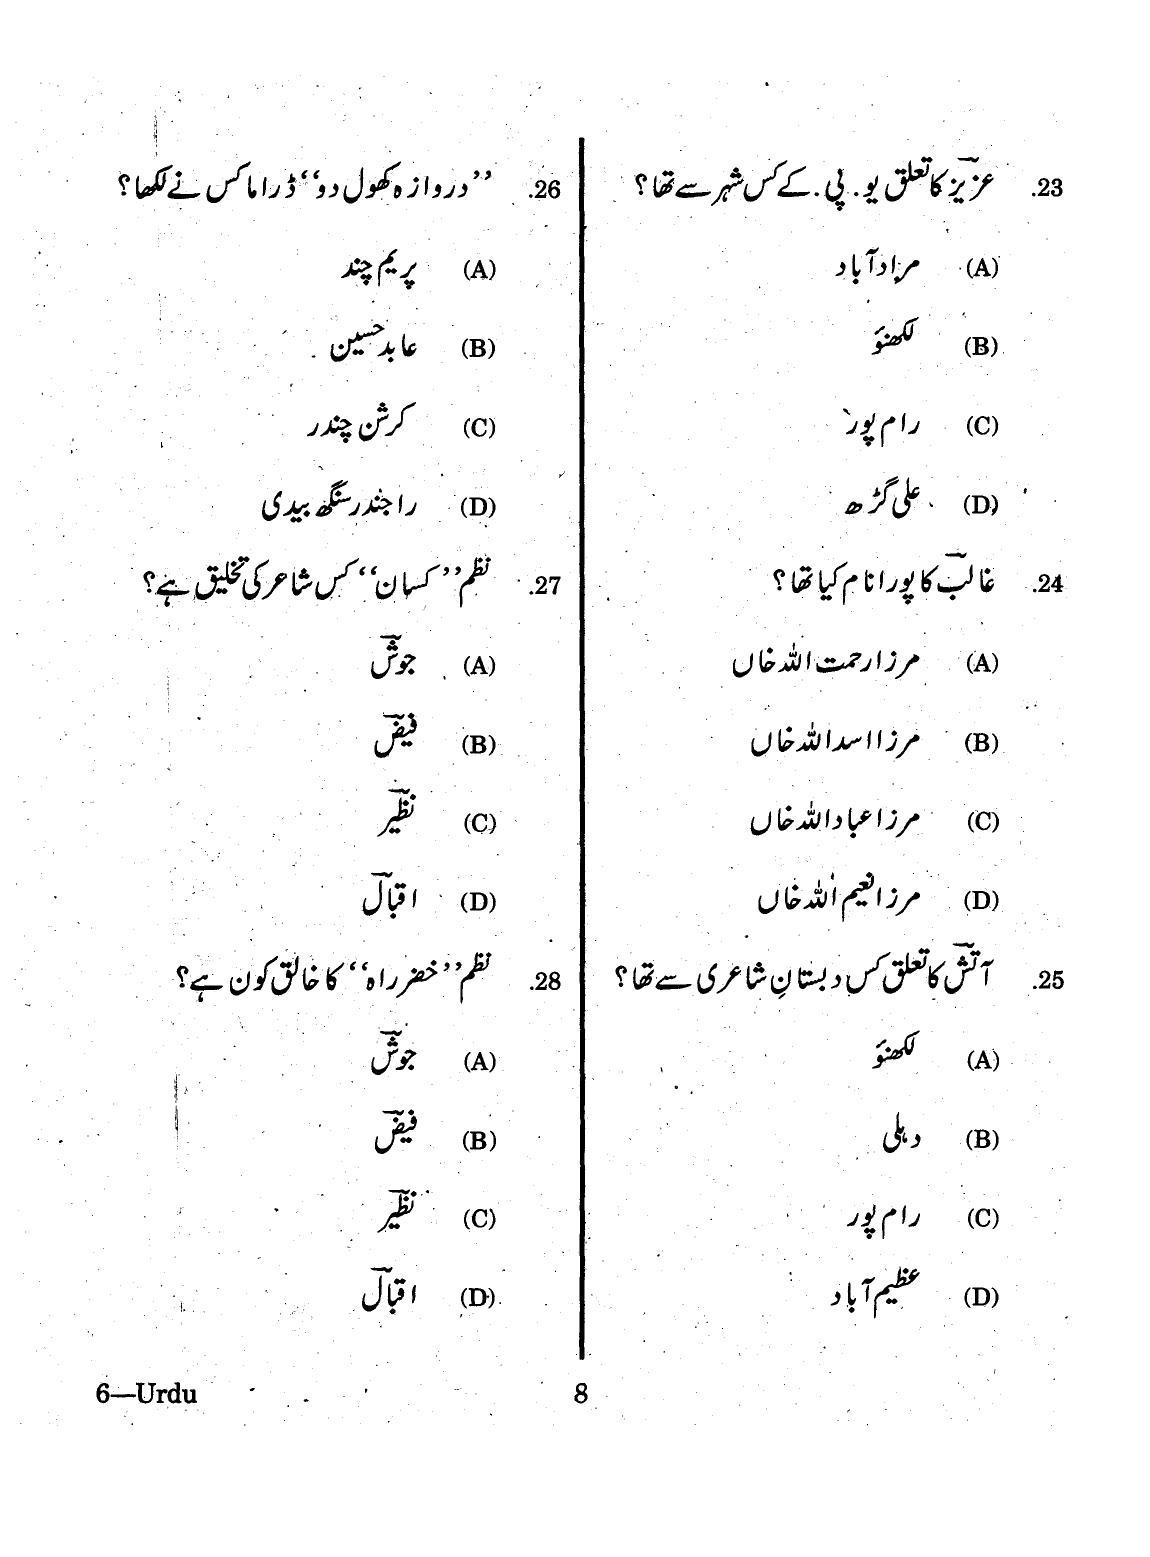 23. عزیزؔ کا تعلق یو. پی. کے کس شہر سے تھا؟
(A) مراد آباد
(B) لکھنؤ
(C) رام پور
(D) علی گڑھ
24. غالبؔ کا پورا نام کیا تھا؟
(A) مرزا رحمت اللہ خاں
(B) مرزا اسد اللہ خاں
(C) مرزا عباد اللہ خاں
(D) مرزا نعیم اللہ خاں
25. آتشؔ کا تعلق کس دبستانِ شاعری سے تھا؟
(A) لکھنؤ
(B) دہلی
(C) رام پور
(D) عظیم آباد
26. ’’دروازہ کھول دو‘‘ ڈراما کس نے لکھا؟
(A) پریم چند
(B) عابد حسین
(C) کرشن چندر
(D) راجندر سنگھ بیدی
27. نظم ’’کسان‘‘ کس شاعر کی تخلیق ہے؟
(A) جوشؔ
(B) فیضؔ
(C) نظیرؔ
(D) اقبالؔ
28. نظم ’’خضر راہ‘‘ کا خالق کون ہے؟
(A) جوشؔ
(B) فیضؔ
(C) نظیرؔ
(D) اقبالؔ
6—Urdu
8